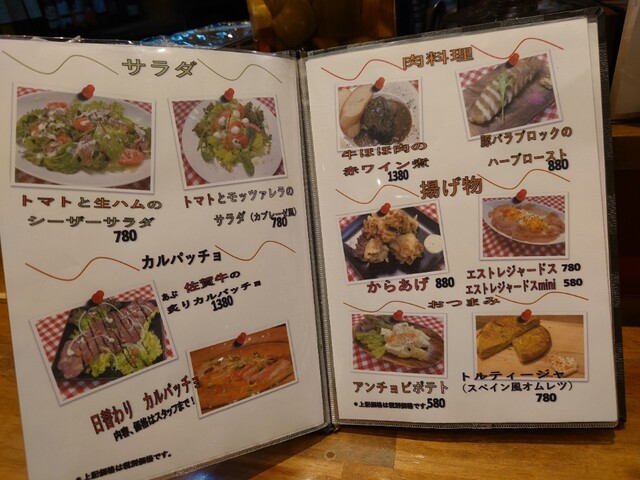 サラダ
トマトと生ハムの
シーザーサラダ
780
トマトとモッツァレラの
サラダ（カプレーゼ風）
780
カルパッチョ
あぶ
佐賀牛の
炙りカルパッチョ
1380
日替わり カルパッチョ
内容、価格はスタッフまで！
＊上記価格は税別価格です。
肉料理
牛ほほ肉の
赤ワイン煮
1380
豚バラブロックの
ハーブロースト
880
揚げ物
からあげ 880
エストレジャードス 780
エストレジャードスmini 580
おつまみ
アンチョビポテト
580
トルティージャ
（スペイン風オムレツ）
780
＊上記価格は税別価格です。